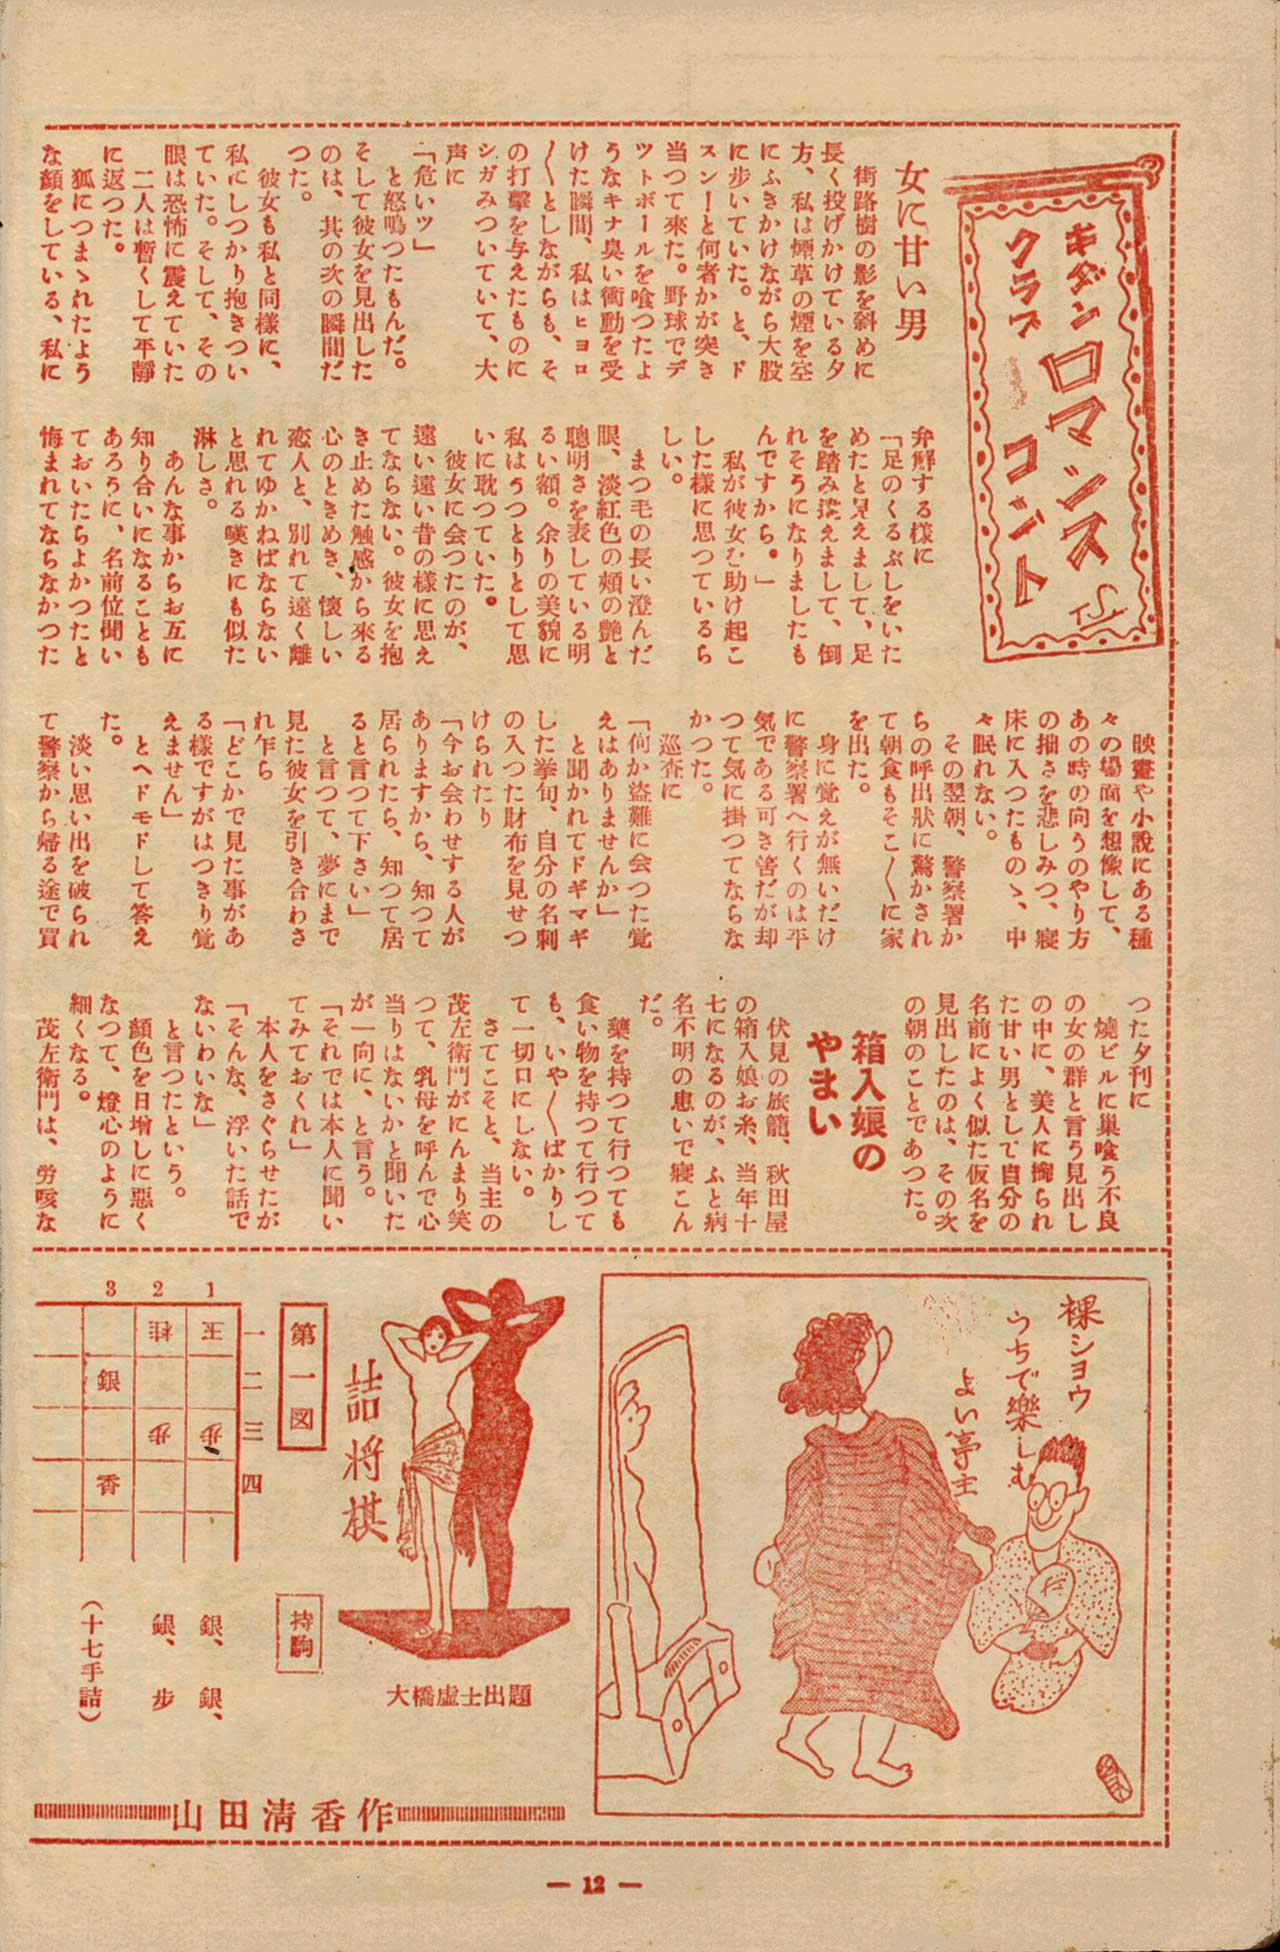 キダン
クラブ
ロマンス
コント
女に甘い男
街路樹の影を斜めに
長く投げかけている夕
方、私は煙草の煙を空
にふきかけながら大股
に步いていた。と、ド
スン！と何者かが突き
当つて來た。野球でデ
ツトボールを喰つたよ
うなキナ臭い衝動を受
けた瞬間、私はヒョロ
〱としながらも、そ
の打擊を与えたものに
シガみついていて、大
声に
「危いツ」
と怒鳴つたもんだ。
そして彼女を見出した
のは、其の次の瞬間だ
つた。
彼女も私と同樣に、
私にしつかり抱きつい
ていた。そして、その
眼は恐怖に震えていた
二人は暫くして平靜
に返つた。
狐につまゝれたよう
な顏をしている、私に
弁解する樣に
「足のくるぶしをいた
めたと見えまして、足
を踏み違えまして、倒
れそうになりましたも
んですから。」
私が彼女を助け起こ
した様に思つているら
しい。
まつ毛の長い澄んだ
眼、淡紅色の頰の艷と
聰明さを表している明
るい額。余りの美貌に
私はうつとりとして思
いに耽つていた。
彼女に会つたのが、
遠い遠い昔の樣に思え
てならない。彼女を抱
き止めた触感から來る
心のときめき、懷しい
恋人と、別れて遠く離
れてゆかねばならない
と思れる嘆きにも似た
淋しさ。
あんな事からお互に
知り合いになることも
あろうに、名前位聞い
ておいたらよかつたと
悔まれてならなかつた
映畫や小說にある種
々の場面を想像して、
あの時の向うのやり方
の拙さを悲しみつ、寢
床に入つたものゝ、中
々眠れない。
その翌朝、警察署か
らの呼出狀に驚かされ
て朝食もそこ〱に家
を出た。
身に覚えが無いだけ
に警察署へ行くのは平
気である可き筈だが却
つて気に掛つてならな
かつた。
巡査に
「何か盜難に会つた覚
えはありませんか」
と聞かれてドギマギ
した挙旬、自分の名刺
の入つた財布を見せつ
けられたり
「今お会わせする人が
ありますから、知つて
居られたら、知つて居
ると言つて下さい」
と言つて、夢にまで
見た彼女を引き合わさ
れ乍ら
「どこかで見た事があ
る様ですがはつきり覚
えません」
とヘドモドして答え
た。
淡い思い出を破られ
て警察から帰る途で買
つた夕刊に
燒ビルに巢喰う不良
の女の群と言う見出し
の中に、美人に掏られ
た甘い男として自分の
名前によく似た仮名を
見出したのは、その次
の朝のことであつた。
箱入娘の
やまい
伏見の旅籠、秋田屋
の箱入娘お糸、当年十
七になるのが、ふと病
名不明の患いで寢こん
だ。
藥を持つて行つても
食い物を持つて行つて
も、いや〱ばかりし
て一切口にしない。
さてこそと、当主の
茂左衛門がにんまり笑
つて、乳母を呼んで心
当りはないかと聞いた
が一向に、と言う。
「それでは本人に聞い
てみておくれ」
本人をさぐらせたが
「そんな、浮いた話で
ないわいな」
と言つたという。
顏色を日增しに惡く
なつて、燈心のように
細くなる。
茂左衛門は、労咳な
裸ショウ
うちで樂しむ
よい亭主
詰将棋
大橋虚士出題
第一図
3 2 1
一 二 三 四
桂 玉
銀
歩 歩
香
持駒
銀、銀、
銀、步
（十七手詰）
山田淸香作
— 12 —